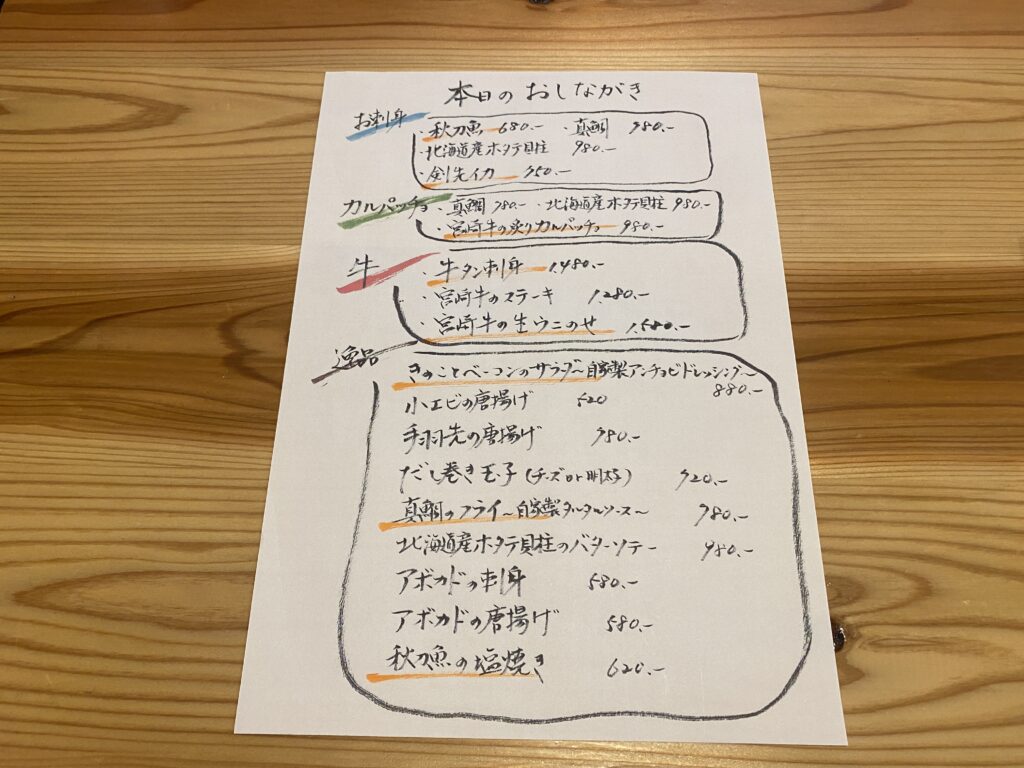 本日のおしながき
お刺身
・秋刀魚 680.- ・真鯛 980.-
・北海道産ホタテ貝柱 980.-
・剣先イカ 750.-
カルパッチョ
・真鯛 980.- ・北海道産ホタテ貝柱 980.-
・宮崎牛の炙りカルパッチョ 980.-
牛
・牛タン刺身 1,480.-
・宮崎牛のステーキ 1,280.-
・宮崎牛の生ウニのせ 1,580.-
逸品
きのことベーコンのサラダ~自家製アンチョビドレッシング~
880.-
小エビの唐揚げ 520
手羽先の唐揚げ 780.-
だし巻き玉子(チーズor明太子) 720.-
真鯛のフライ~自家製タルタルソース~ 980.-
北海道産ホタテ貝柱のバターソテー 980.-
アボカドの刺身 580.-
アボカドの唐揚げ 580.-
秋刀魚の塩焼き 620.-